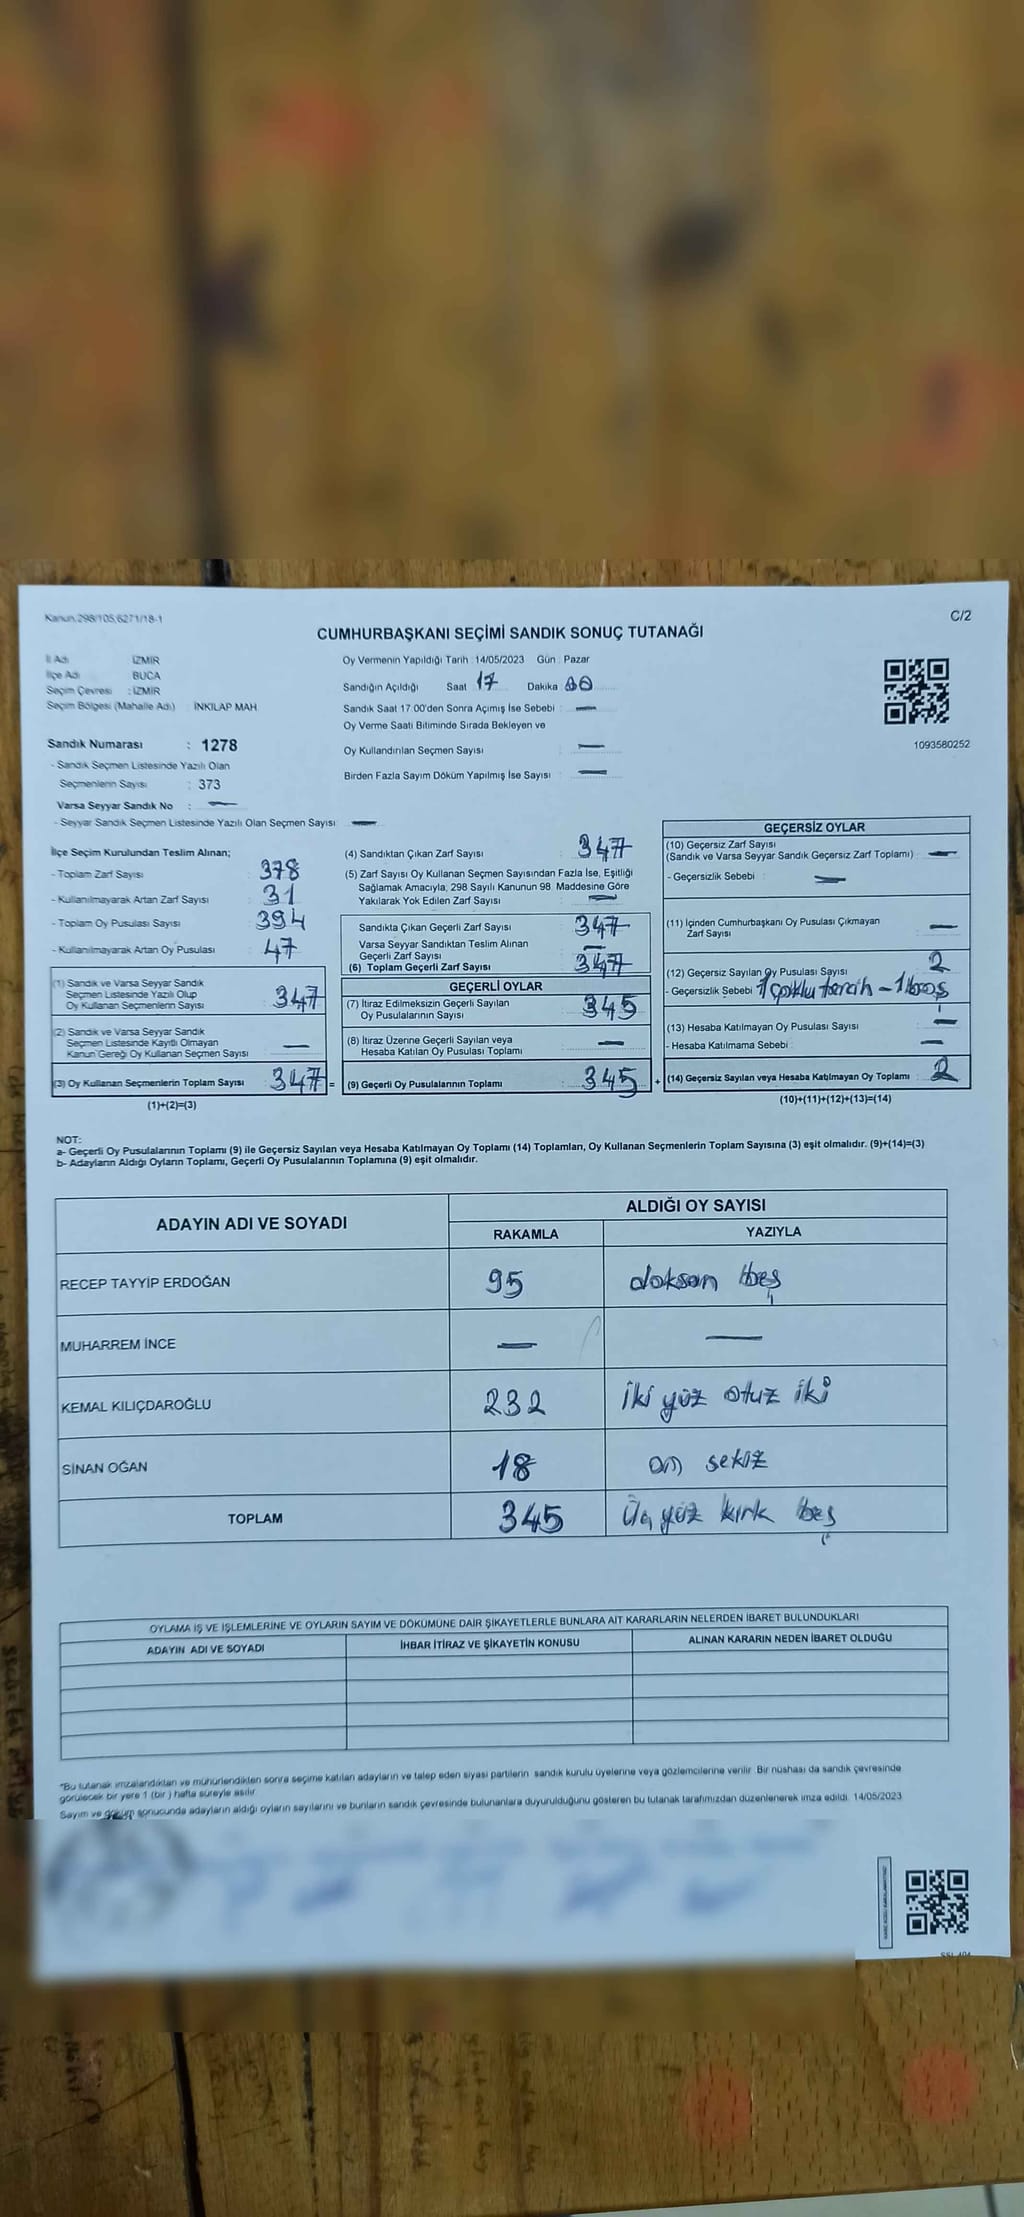 Kanun.298/105,6271/18-1
C/2
CUMHURBAŞKANI SEÇİMİ SANDIK SONUÇ TUTANAĞI
İl Adı İZMİR
İlçe Adı BUCA
Seçim Çevresi : İZMİR
Seçim Bölgesi (Mahalle Adı) : İNKILAP MAH
Sandık Numarası : 1278
- Sandık Seçmen Listesinde Yazılı Olan
Seçmenlerin Sayısı : 373
Varsa Seyyar Sandık No : —
- Seyyar Sandık Seçmen Listesinde Yazılı Olan Seçmen Sayısı: —
Oy Vermenin Yapıldığı Tarih : 14/05/2023 Gün : Pazar
Sandığın Açıldığı Saat 17 Dakika 00
Sandık Saat 17:00'den Sonra Açımış İse Sebebi : —
Oy Verme Saati Bitiminde Sırada Bekleyen ve
Oy Kullandırılan Seçmen Sayısı : —
Birden Fazla Sayım Döküm Yapılmış İse Sayısı : —
1093580252
İlçe Seçim Kurulundan Teslim Alınan;
- Toplam Zarf Sayısı : 378
- Kullanılmayarak Artan Zarf Sayısı : 31
- Toplam Oy Pusulası Sayısı : 394
- Kullanılmayarak Artan Oy Pusulası : 47
(1) Sandık ve Varsa Seyyar Sandık
Seçmen Listesinde Yazılı Olup
Oy Kullanan Seçmenlerin Sayısı : 347
(2) Sandık ve Varsa Seyyar Sandık
Seçmen Listesinde Kayıtlı Olmayan
Kanun Gereği Oy Kullanan Seçmen Sayısı : —
(3) Oy Kullanan Seçmenlerin Toplam Sayısı : 347 =
(1)+(2)=(3)
(4) Sandıktan Çıkan Zarf Sayısı : 347
(5) Zarf Sayısı Oy Kullanan Seçmen Sayısından Fazla İse, Eşitliği
Sağlamak Amacıyla, 298 Sayılı Kanunun 98. Maddesine Göre
Yakılarak Yok Edilen Zarf Sayısı : —
Sandıkta Çıkan Geçerli Zarf Sayısı : 347
Varsa Seyyar Sandıktan Teslim Alınan
Geçerli Zarf Sayısı : —
(6) Toplam Geçerli Zarf Sayısı : 347
GEÇERLİ OYLAR
(7) İtiraz Edilmeksizin Geçerli Sayılan
Oy Pusulalarının Sayısı : 345
(8) İtiraz Üzerine Geçerli Sayılan veya
Hesaba Katılan Oy Pusulası Toplamı : —
(9) Geçerli Oy Pusulalarının Toplamı : 345 +
GEÇERSİZ OYLAR
(10) Geçersiz Zarf Sayısı
(Sandık ve Varsa Seyyar Sandık Geçersiz Zarf Toplamı) : —
- Geçersizlik Sebebi : —
(11) İçinden Cumhurbaşkanı Oy Pusulası Çıkmayan
Zarf Sayısı : —
(12) Geçersiz Sayılan Oy Pusulası Sayısı : 2
- Geçersizlik Sebebi 1 çoklu tercih - 1 boş
(13) Hesaba Katılmayan Oy Pusulası Sayısı : —
- Hesaba Katılmama Sebebi : —
(14) Geçersiz Sayılan veya Hesaba Katılmayan Oy Toplamı : 2
(10)+(11)+(12)+(13)=(14)
NOT:
a- Geçerli Oy Pusulalarının Toplamı (9) ile Geçersiz Sayılan veya Hesaba Katılmayan Oy Toplamı (14) Toplamları, Oy Kullanan Seçmenlerin Toplam Sayısına (3) eşit olmalıdır. (9)+(14)=(3)
b- Adayların Aldığı Oyların Toplamı, Geçerli Oy Pusulalarının Toplamına (9) eşit olmalıdır.
ADAYIN ADI VE SOYADI
ALDIĞI OY SAYISI
RAKAMLA YAZIYLA
RECEP TAYYİP ERDOĞAN 95 doksan beş
MUHARREM İNCE — —
KEMAL KILIÇDAROĞLU 232 iki yüz otuz iki
SİNAN OĞAN 18 on sekiz
TOPLAM 345 Üç yüz kırk beş
OYLAMA İŞ VE İŞLEMLERİNE VE OYLARIN SAYIM VE DÖKÜMÜNE DAİR ŞİKAYETLERLE BUNLARA AİT KARARLARIN NELERDEN İBARET BULUNDUKLARI
ADAYIN ADI VE SOYADI İHBAR İTİRAZ VE ŞİKAYETİN KONUSU ALINAN KARARIN NEDEN İBARET OLDUĞU
*Bu tutanak imzalandıktan ve mühürlendikten sonra seçime katılan adayların ve talep eden siyasi partilerin sandık kurulu üyelerine veya gözlemcilerine verilir. Bir nüshası da sandık çevresinde
görülecek bir yere 1 (bir) hafta süreyle asılır.
Sayım ve döküm sonucunda adayların aldığı oyların sayılarını ve bunların sandık çevresinde bulunanlara duyurulduğunu gösteren bu tutanak tarafımızdan düzenlenerek imza edildi. 14/05/2023